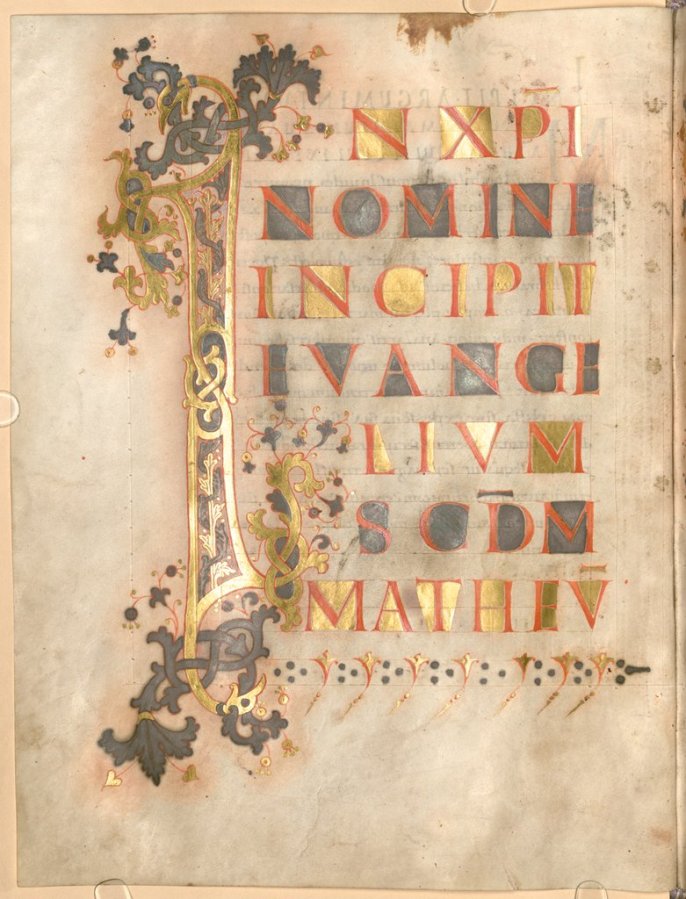 IN XP̄I
NOMINE
INCIPIT
EVANGE
LIVM
SCD̄M
MATHEV̄